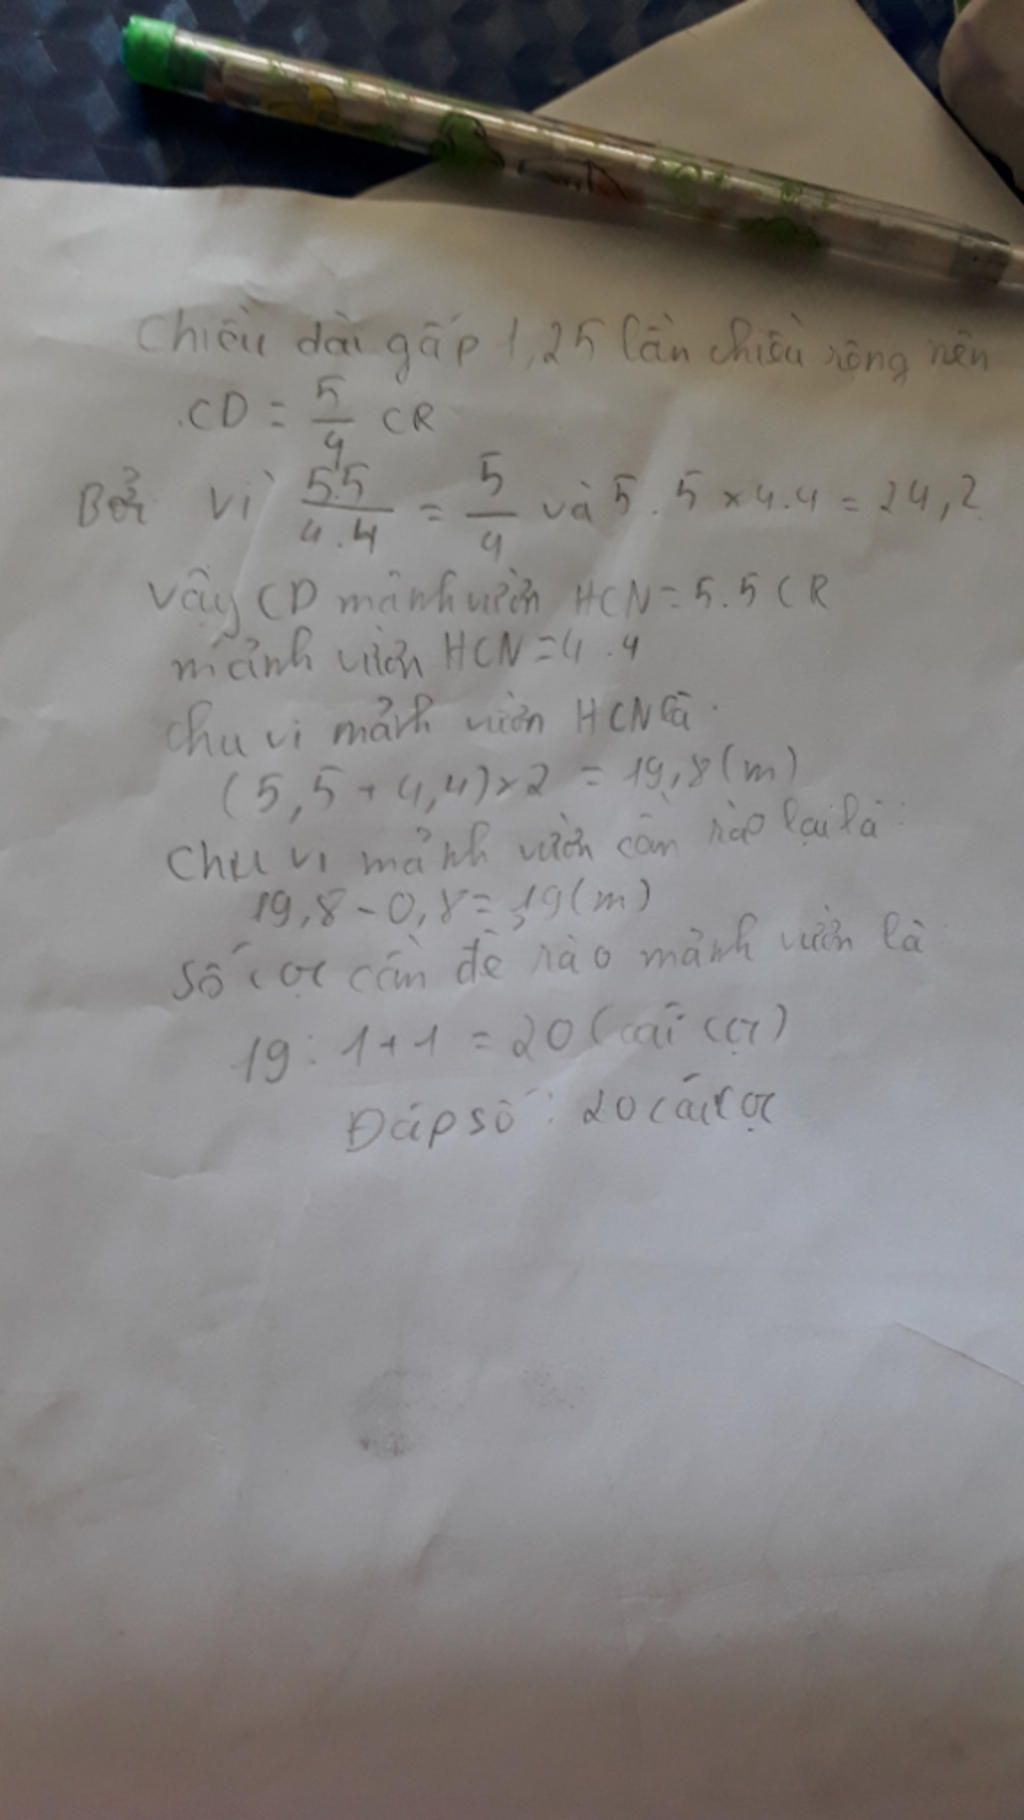 Chiều dài gấp 1,25 lần chiều rộng nên
CD = 5/4 CR
Bởi vì 5.5/4.4 = 5/4 và 5.5 x 4.4 = 24,2
Vậy CD mảnh vườn HCN = 5.5 CR
mảnh vườn HCN = 4.4
chu vi mảnh vườn HCN là
(5,5 + 4,4) x 2 = 19,8 (m)
Chu vi mảnh vườn cần rào lại là:
19,8 - 0,8 = 19 (m)
Số cọc cần để rào mảnh vườn là
19 : 1 + 1 = 20 (cái cọc)
Đáp số : 20 cái cọc